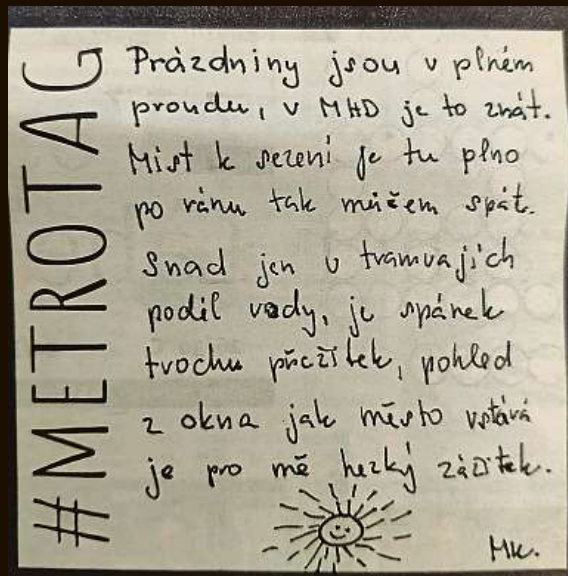 #METROTAG
Prázdniny jsou v plném
proudu, v MHD je to znát.
Míst k sezení je tu plno
po ránu tak můžem spát.
Snad jen v tramvajích
podíl vody, je spánek
trochu přežitek, pohled
z okna jak město vstává
je pro mě hezký zážitek.
MK.